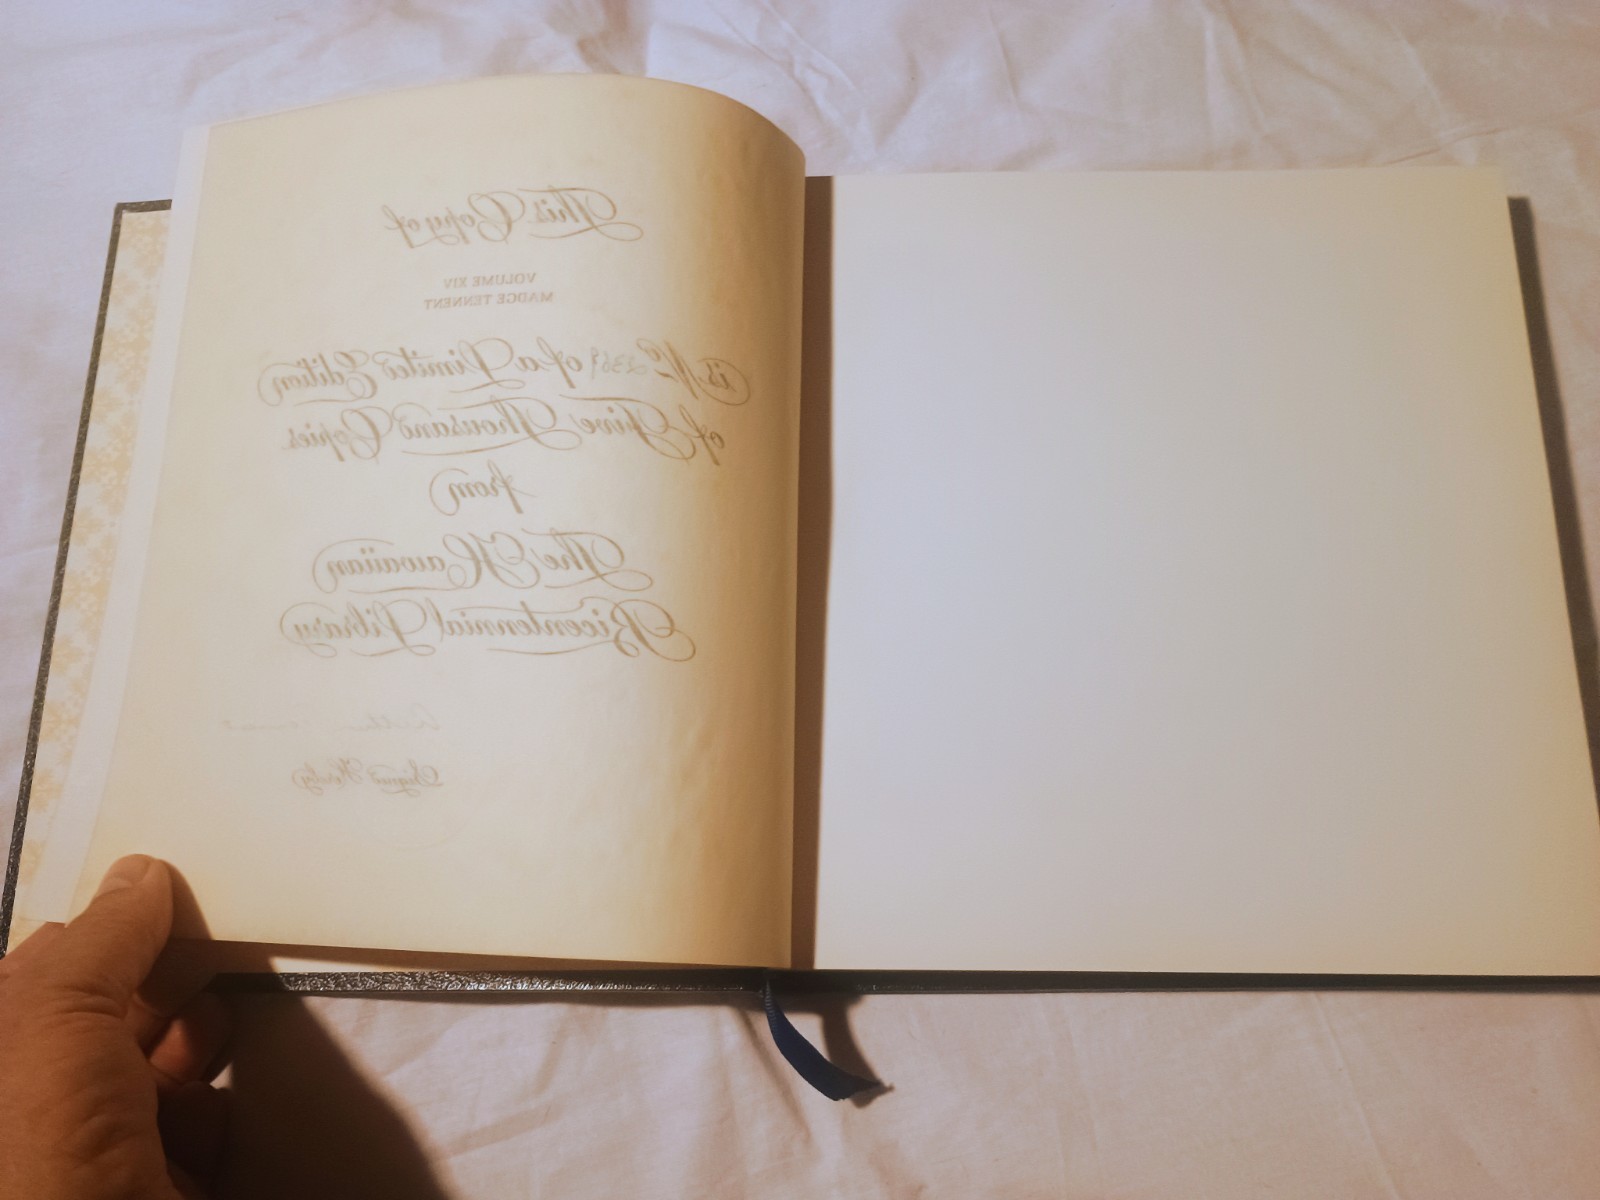 This Copy of
VOLUME XIV
MADGE TENNENT
is No 2369 of a Limited Edition
of Five Thousand Copies
from
The Hawaiian
Bicentennial Library